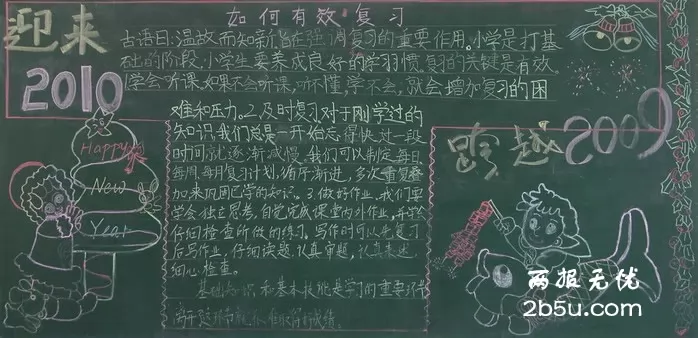 迎来
2010
如何有效复习
古语曰:温故而知新,旨在强调复习的重要作用。小学是打基
础的阶段,小学生要养成良好的学习惯,复习的关键是有效
学会听课,如果不会听课,听不懂,学不会,就会增加复习的困
难和压力。2、及时复习对于刚学过的
知识,我们总是一开始忘得快,过一段
时间就逐渐减慢,我们可以制定每日
每周、每月复习计划,循序渐进,多次重复叠
加来巩固已学的知识。3、做好作业,我们要
学会独立思考,自觉完成课堂内外作业,并
仔细检查所做的练习,写作时可以先复习
后写作业,仔细读题,认真审题,认真表述
细心检查。
基础知识和基本技能是学习的重要环节
离开这环节就不
Happy
New
Year
跨越2009
两报无忧
2b5u.com